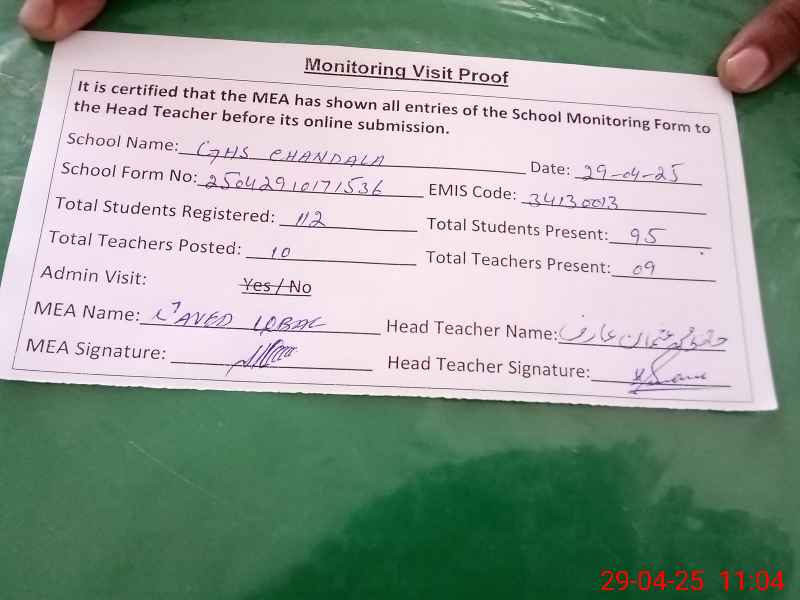 Monitoring Visit Proof
It is certified that the MEA has shown all entries of the School Monitoring Form to
the Head Teacher before its online submission.
School Name: GHS CHANDALA Date: 29-04-25
School Form No: 25042910171536 EMIS Code: 34130013
Total Students Registered: 112 Total Students Present: 95
Total Teachers Posted: 10 Total Teachers Present: 09
Admin Visit: Yes / No
MEA Name: JAVED IQBAL Head Teacher Name: عثمان
MEA Signature: Head Teacher Signature:
29-04-25 11:04